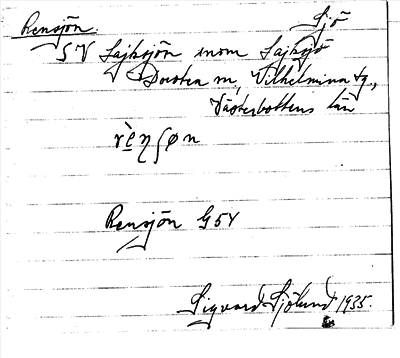 Rensjön. Sjö
SV Sajksjön inom Sajksjö
Dorotea m, Vilhelmina tg.,
Västerbottens län
rèŋʃøn
Rensjön G54
Sigvard Sjölund 1935.